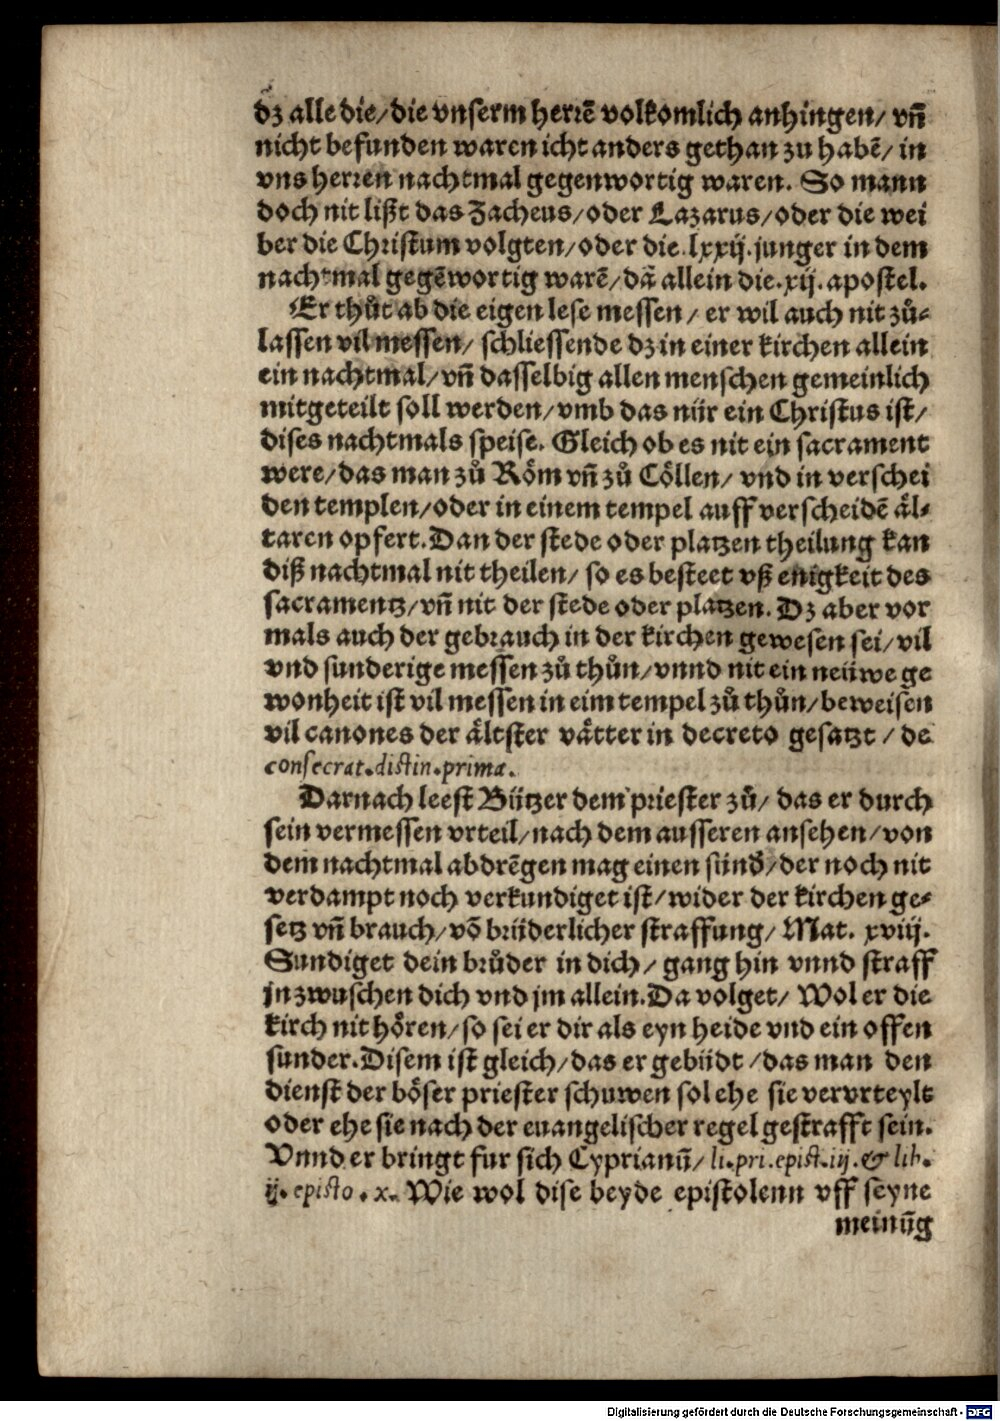 dz alle die/die vnserm herrē volkomlich anhingen/ vñ
nicht befunden waren icht anders gethan zu habē/ in
vns herren nachtmal gegenwortig waren. So mann
doch nit lißt das Zacheus/oder Lazarus/oder die wei
ber die Christum volgten/oder die.lxxij.junger in dem
nachtmal gegēwortig warē/dā allein die.xij.apostel.
Er thůt ab die eigen lese messen/ er wil auch nit zů-
lassen vil messen/ schliessende dz in einer kirchen allein
ein nachtmal/vñ dasselbig allen menschen gemeinlich
mitgeteilt soll werden/vmb das nür ein Christus ist/
dises nachtmals speise. Gleich ob es nit ein sacrament
were/das man zů Röm vñ zů Cöllen/ vnd in verschei
den templen/oder in einem tempel auff verscheidē äl-
taren opfert.Dan der stede oder platzen theilung kan
diß nachtmal nit theilen/ so es besteet vß enigkeit des
sacramentz/vñ nit der stede oder platzen. Dz aber vor
mals auch der gebrauch in der kirchen gewesen sei/vil
vnd sunderige messen zů thůn/vnnd nit ein neüwe ge
wonheit ist vil messen in eim tempel zů thůn/beweisen
vil canones der ältster vätter in decreto gesatzt / de
consecrat.distin.prima.
Darnach leest Bützer dem priester zů/ das er durch
sein vermessen vrteil/nach dem ausseren ansehen/von
dem nachtmal abdrēgen mag einen sünd̄/der noch nit
verdampt noch verkundiget ist/wider der kirchen ge-
setz vñ brauch/vō brüderlicher straffung/ Mat. xviij.
Sundiget dein brůder in dich/ gang hin vnnd straff
jn zwuschen dich vnd jm allein.Da volget/ Wol er die
kirch nit hören/so sei er dir als eyn heide vnd ein offen
sunder.Disem ist gleich/das er gebüdt/das man den
dienst der böser priester schuwen sol ehe sie vervrteylt
oder ehe sie nach der euangelischer regel gestrafft sein.
Vnnd er bringt fur sich Cyprianū/ li.pri.epist.iij.& lib.
ij.episto.x. Wie wol dise beyde epistolenn vff seyne
meinūg
Digitalisierung gefördert durch die Deutsche Forschungsgemeinschaft - DFG